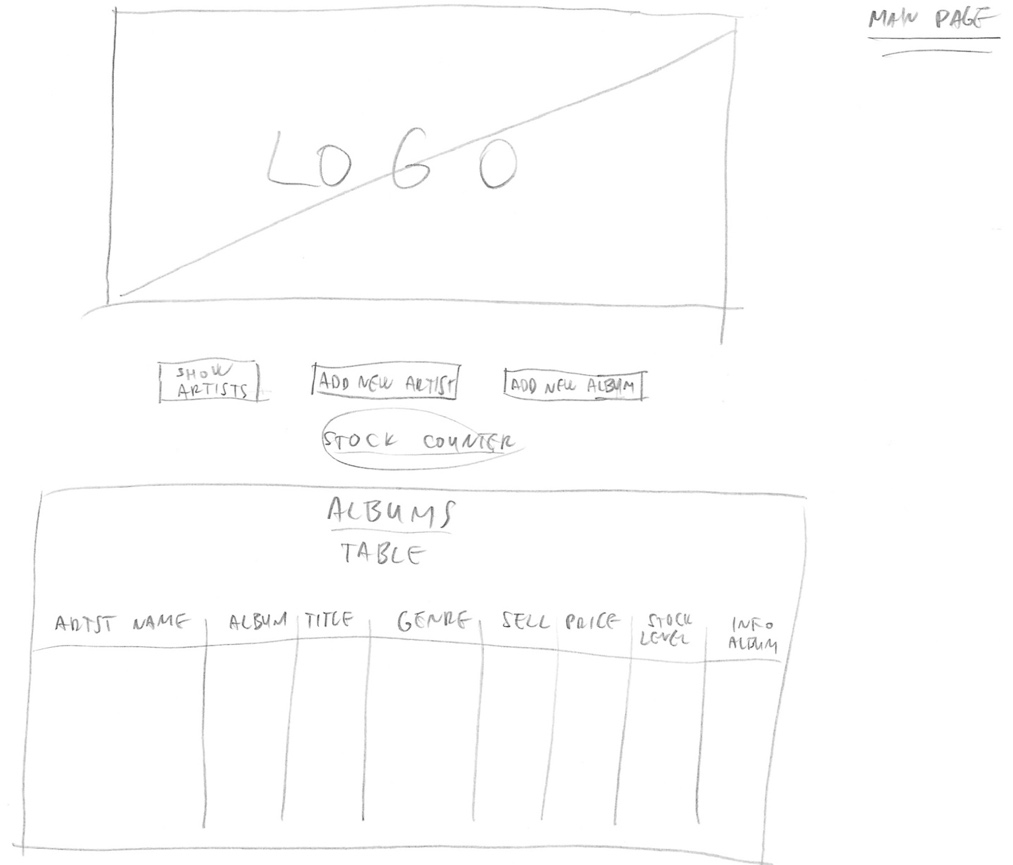 MAIN PAGE
LOGO
SHOW
ARTISTS
ADD NEW ARTIST
ADD NEW ALBUM
STOCK COUNTER
ALBUMS
TABLE
ARTST NAME ALBUM TITLE GENRE SELL PRICE STOCK LEVEL INFO ALBUM